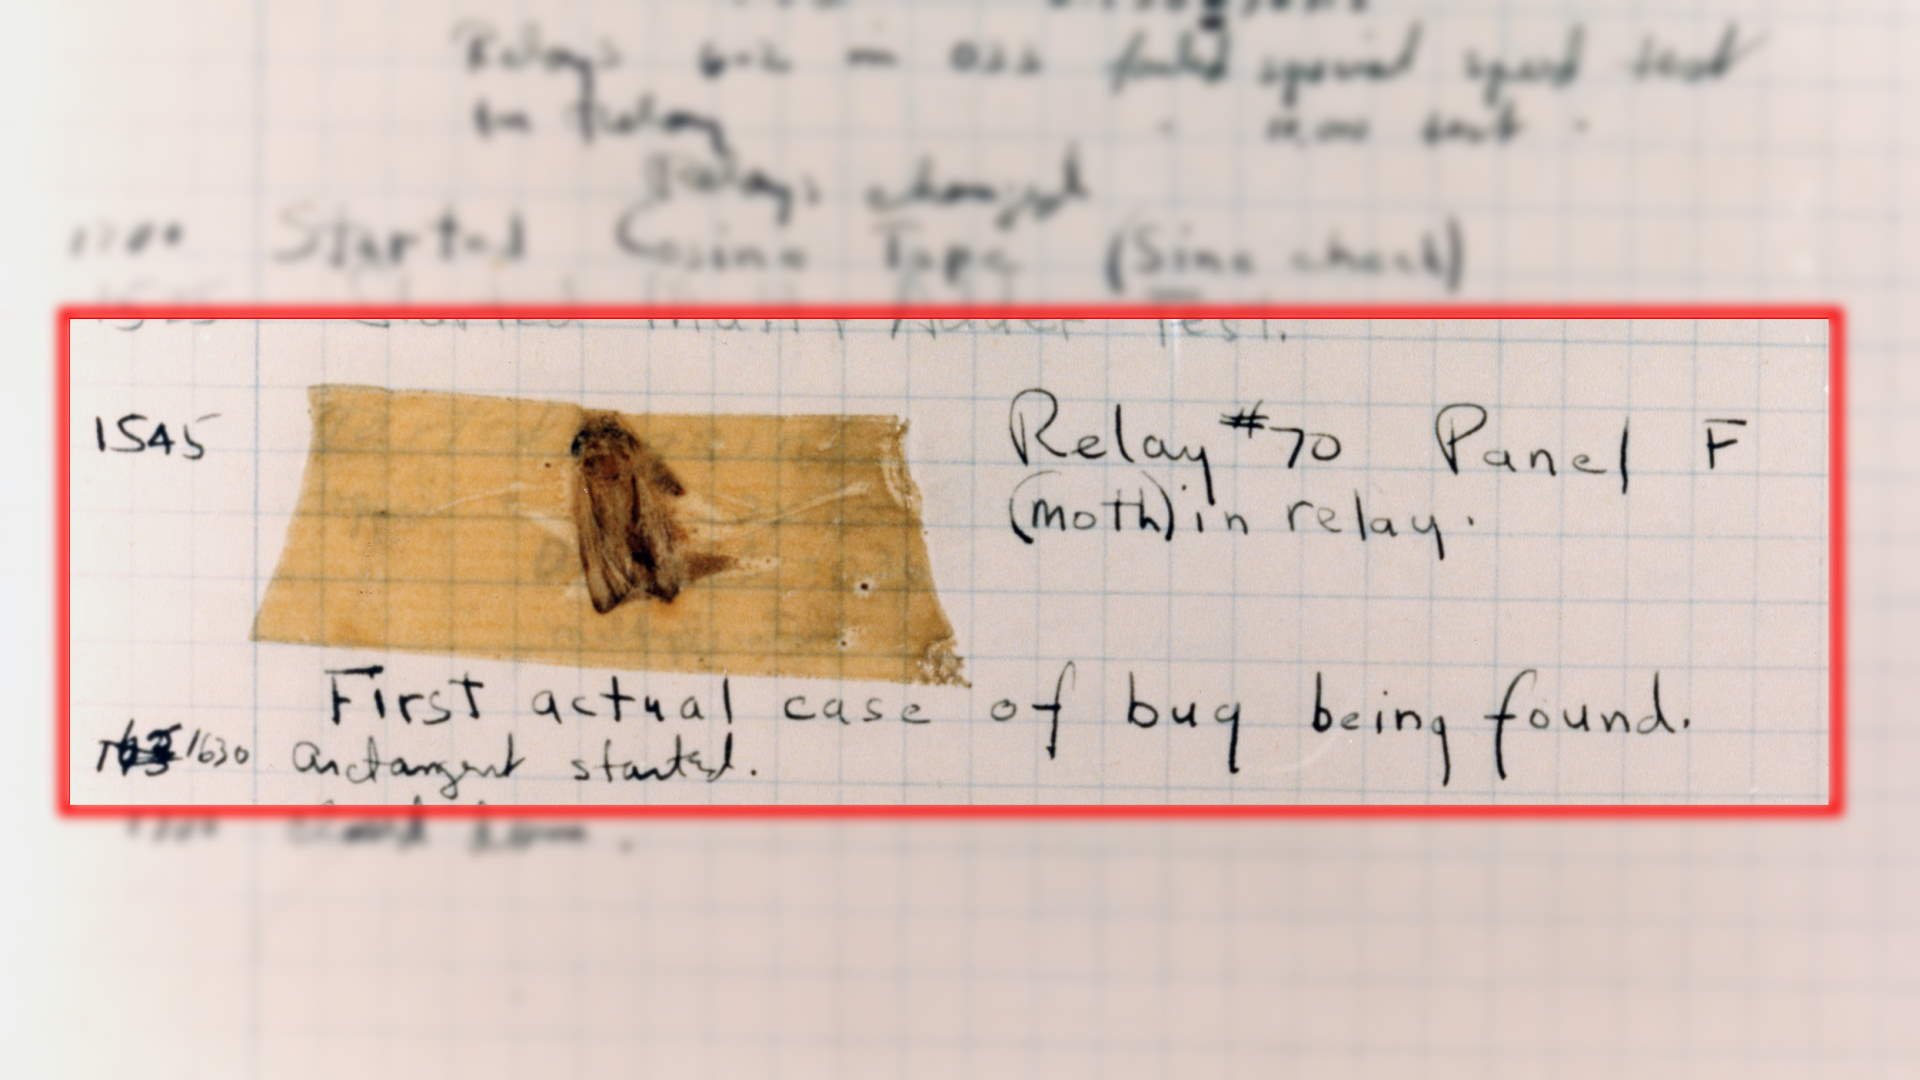 Relays 6-2 in 033 failed special speed test
in relay
Relays changed
Started Cosine Tape (Sine check)
1525 Started Mult+ Adder Test.
1545 Relay #70 Panel F
(moth) in relay.
First actual case of bug being found.
1630 arctangent started.
1700 closed down.